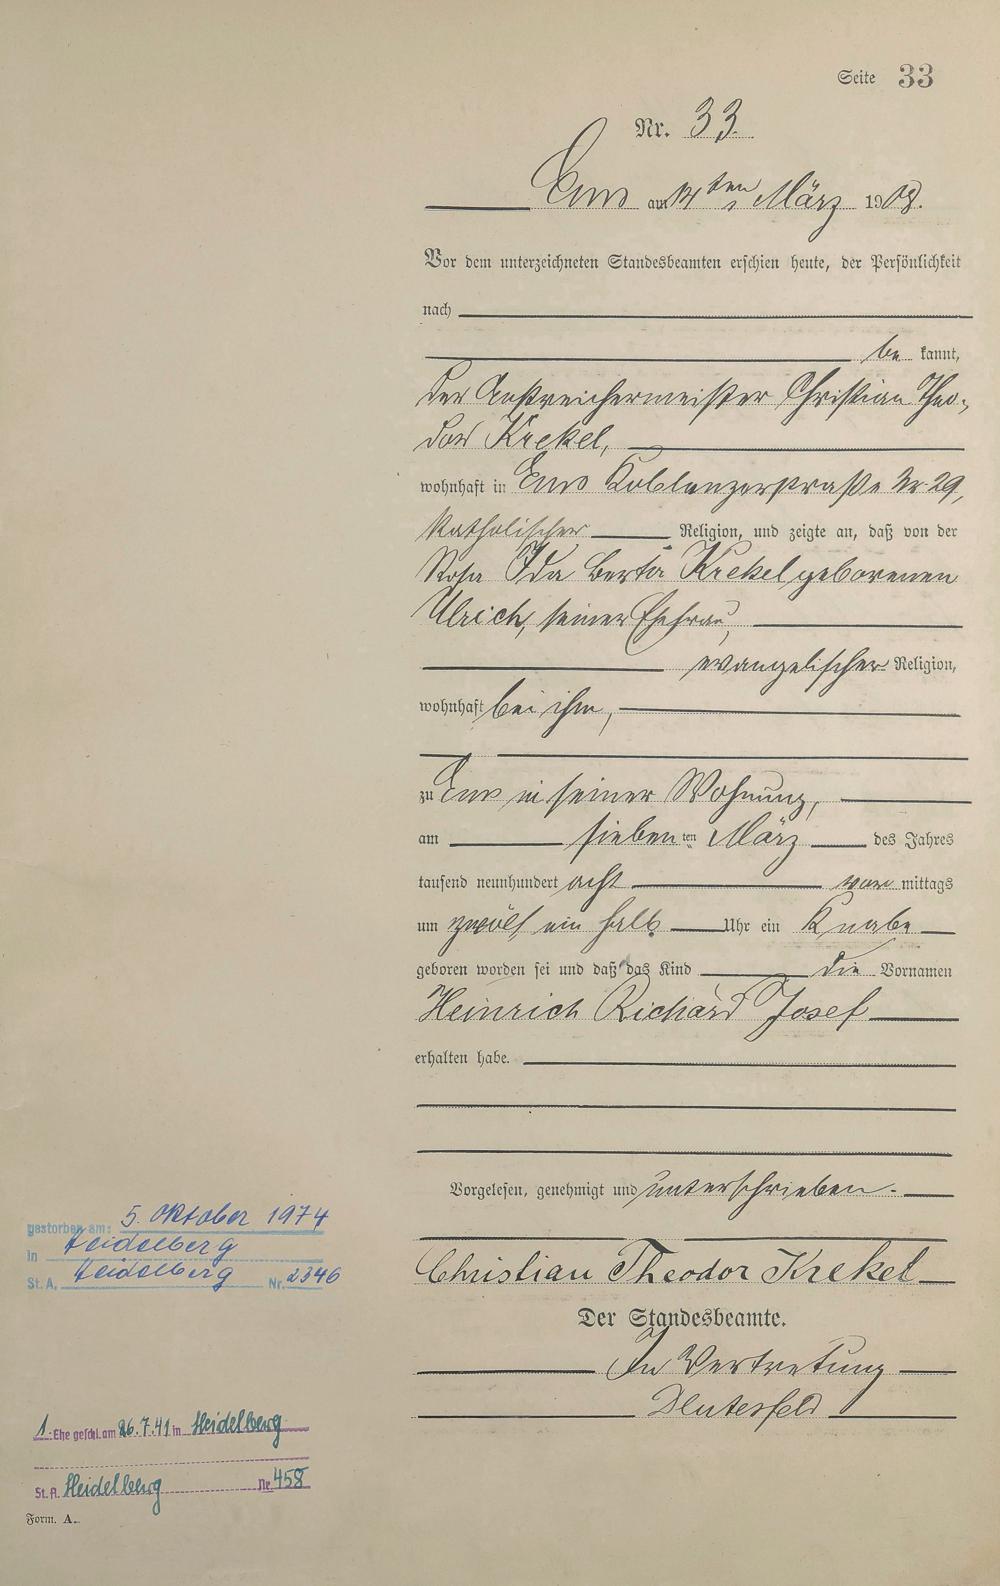 Seite 33
Nr. 33.
Ems am 14ten März 1908.
Vor dem unterzeichneten Standesbeamten erschien heute, der Persönlichkeit
nach
be kannt,
der Anstreichermeister Christian Theo-
dor Krekel,
wohnhaft in Ems Koblenzerstraße Nr 29,
katholischer Religion, und zeigte an, daß von der
Rosa Ida Berta Krekel geborenen
Ulrich, seiner Ehefrau,
evangelischer Religion,
wohnhaft bei ihm,
zu Ems in seiner Wohnung,
am siebenten März des Jahres
tausend neunhundert acht vor mittags
um zwölf ein halb Uhr ein Knabe
geboren worden sei und daß das Kind die Vornamen
Heinrich Richard Josef
erhalten habe.
Vorgelesen, genehmigt und unterschrieben.
Christian Theodor Krekel
Der Standesbeamte.
In Vertretung
gestorben am: 5. Oktober 1974
in Heidelberg
St. A. Heidelberg Nr. 2346
1. Ehe geschl. am 26.7.41 in Heidelberg
St. A. Heidelberg Nr. 458
Form. A.